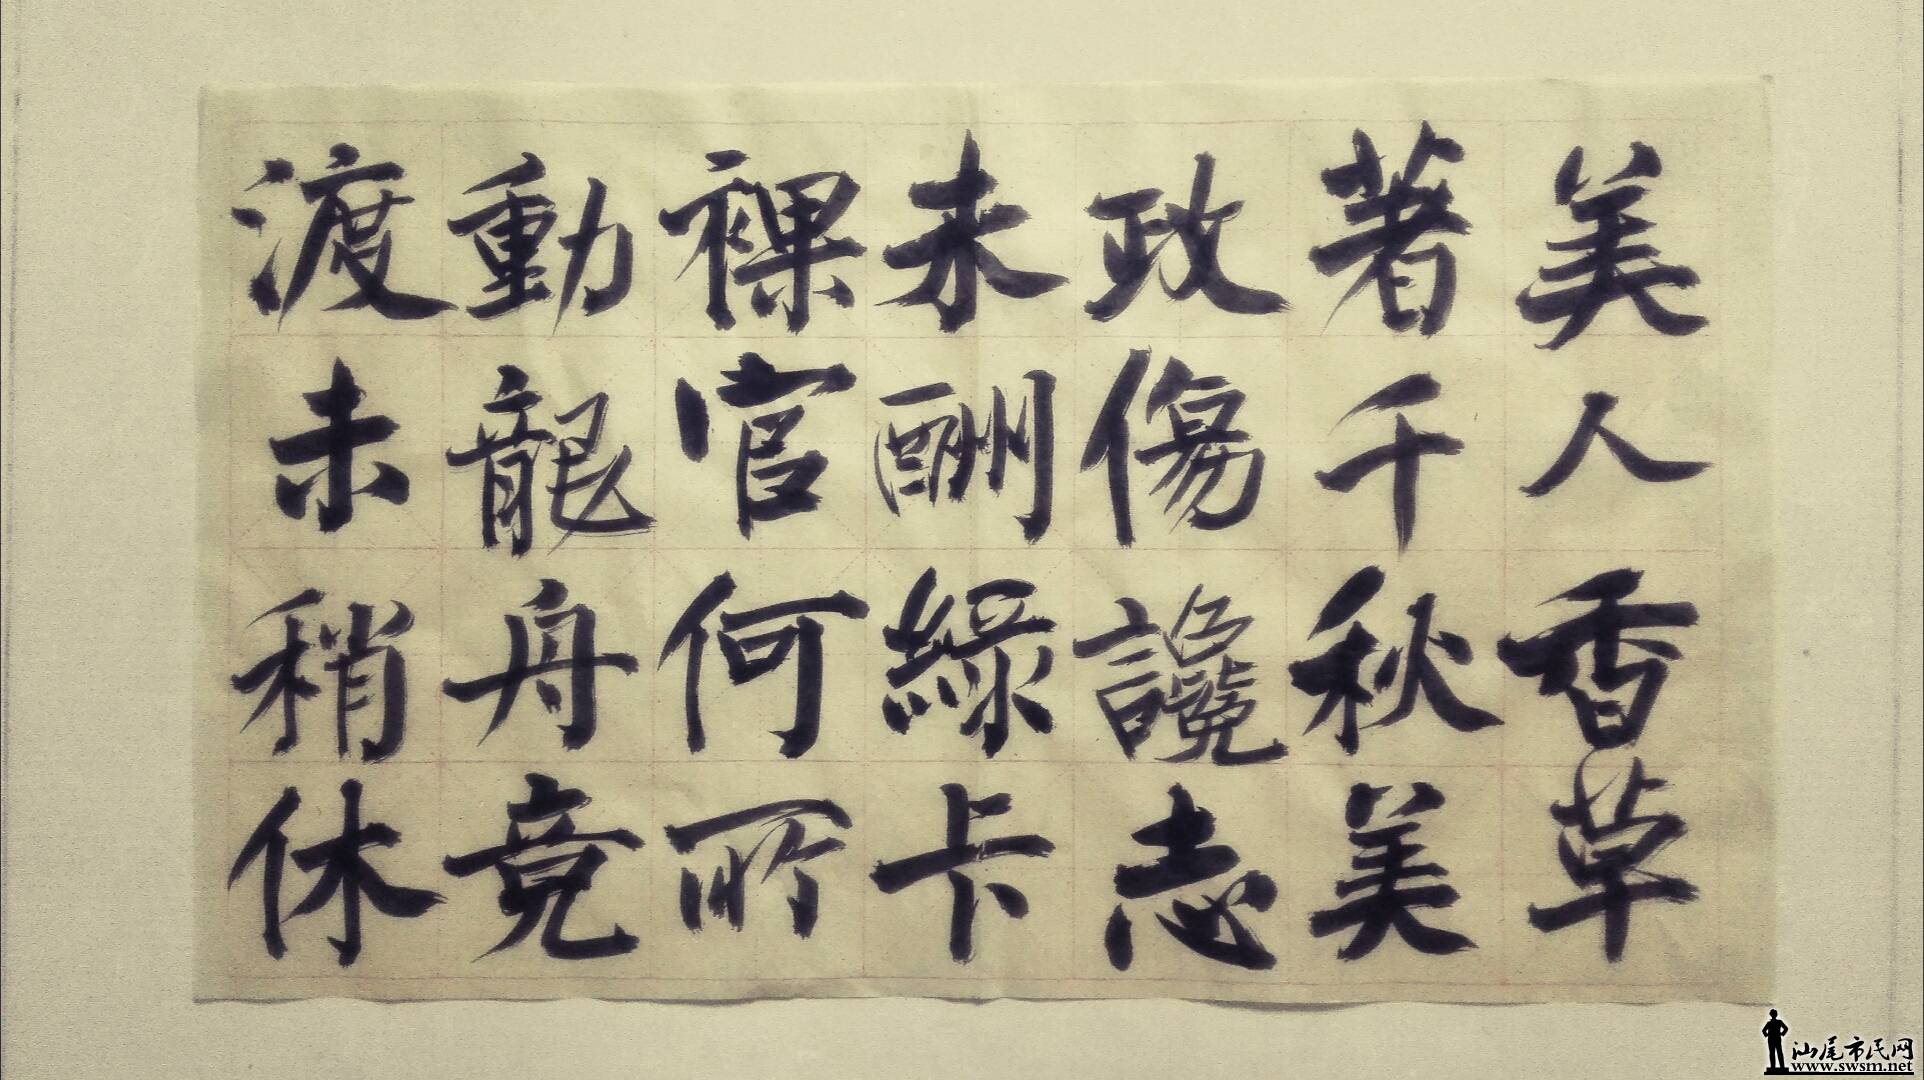 美人香草
著千秋美
政傷讒志
未酬綠卡
裸官何所
動龍舟竟
渡未稍休
汕尾市民网
www.swsm.net